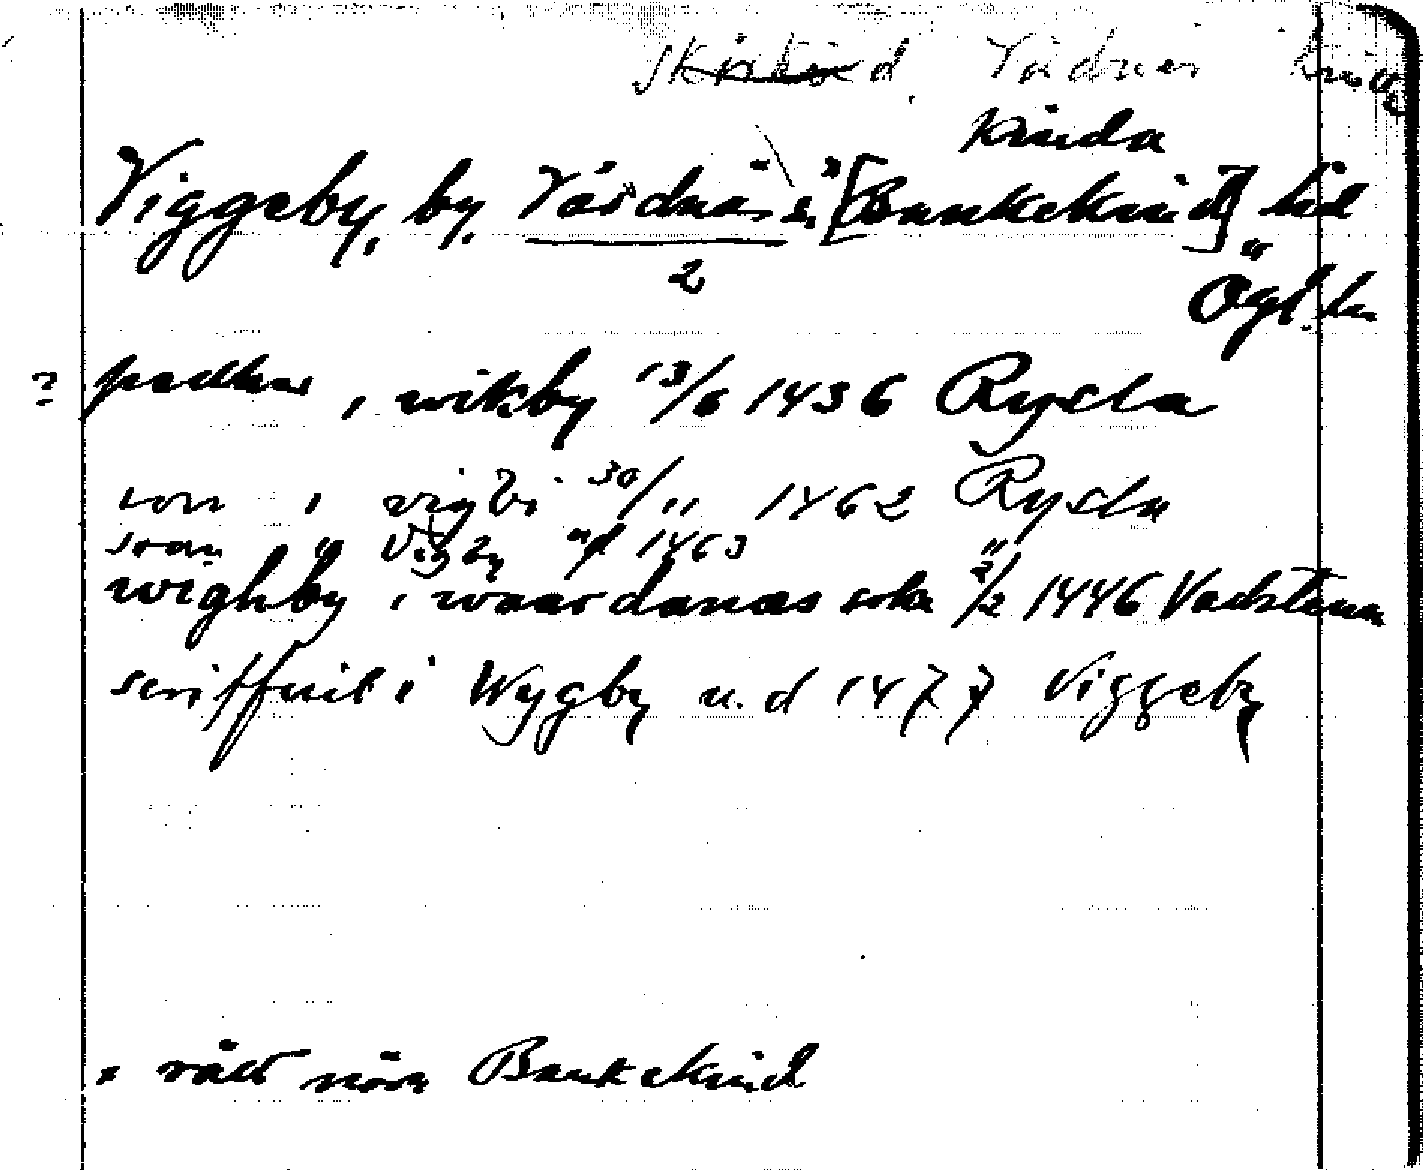 Vårdnäs
Kinda
Viggeby, by, Vårdnäs s. [Bankekind] hd
2
Ögl. län
? pedhar i wikby 13/6 1436 Rycla
son i vigbi 30/11 1462 Rycla
Vigby ud 1463
wighby i waardanæs sokn 2/2 1446 Vadstena
scriffuit i Wygby u.d 1477 Viggeby
x rätt nära Bankekind